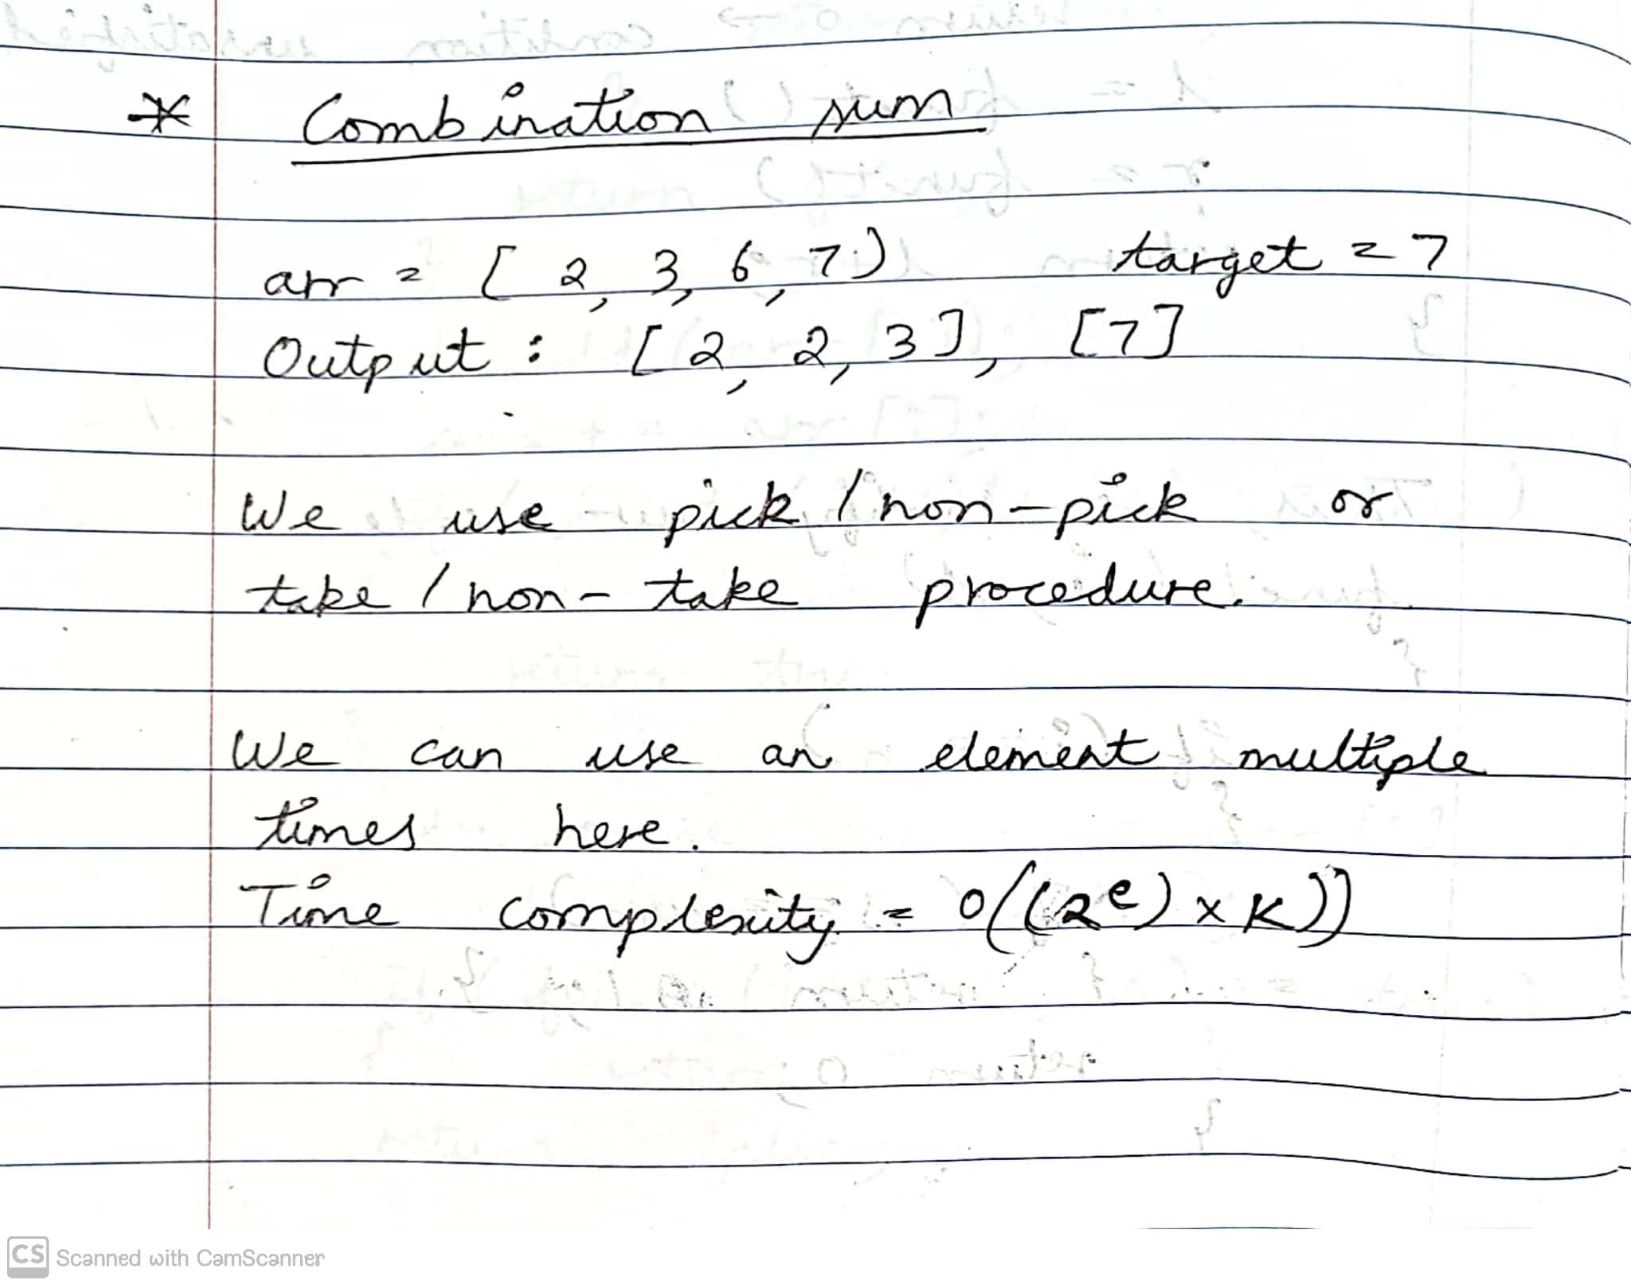 * Combination sum
arr = [ 2, 3, 6, 7) target = 7
Output : [ 2, 2, 3 ], [7]
We use pick / non-pick or
take / non-take procedure.
We can use an element multiple
times here.
Time complexity = O((2^e) x K))
CS Scanned with CamScanner